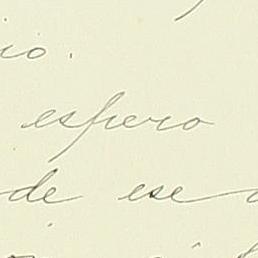 espero
de ese